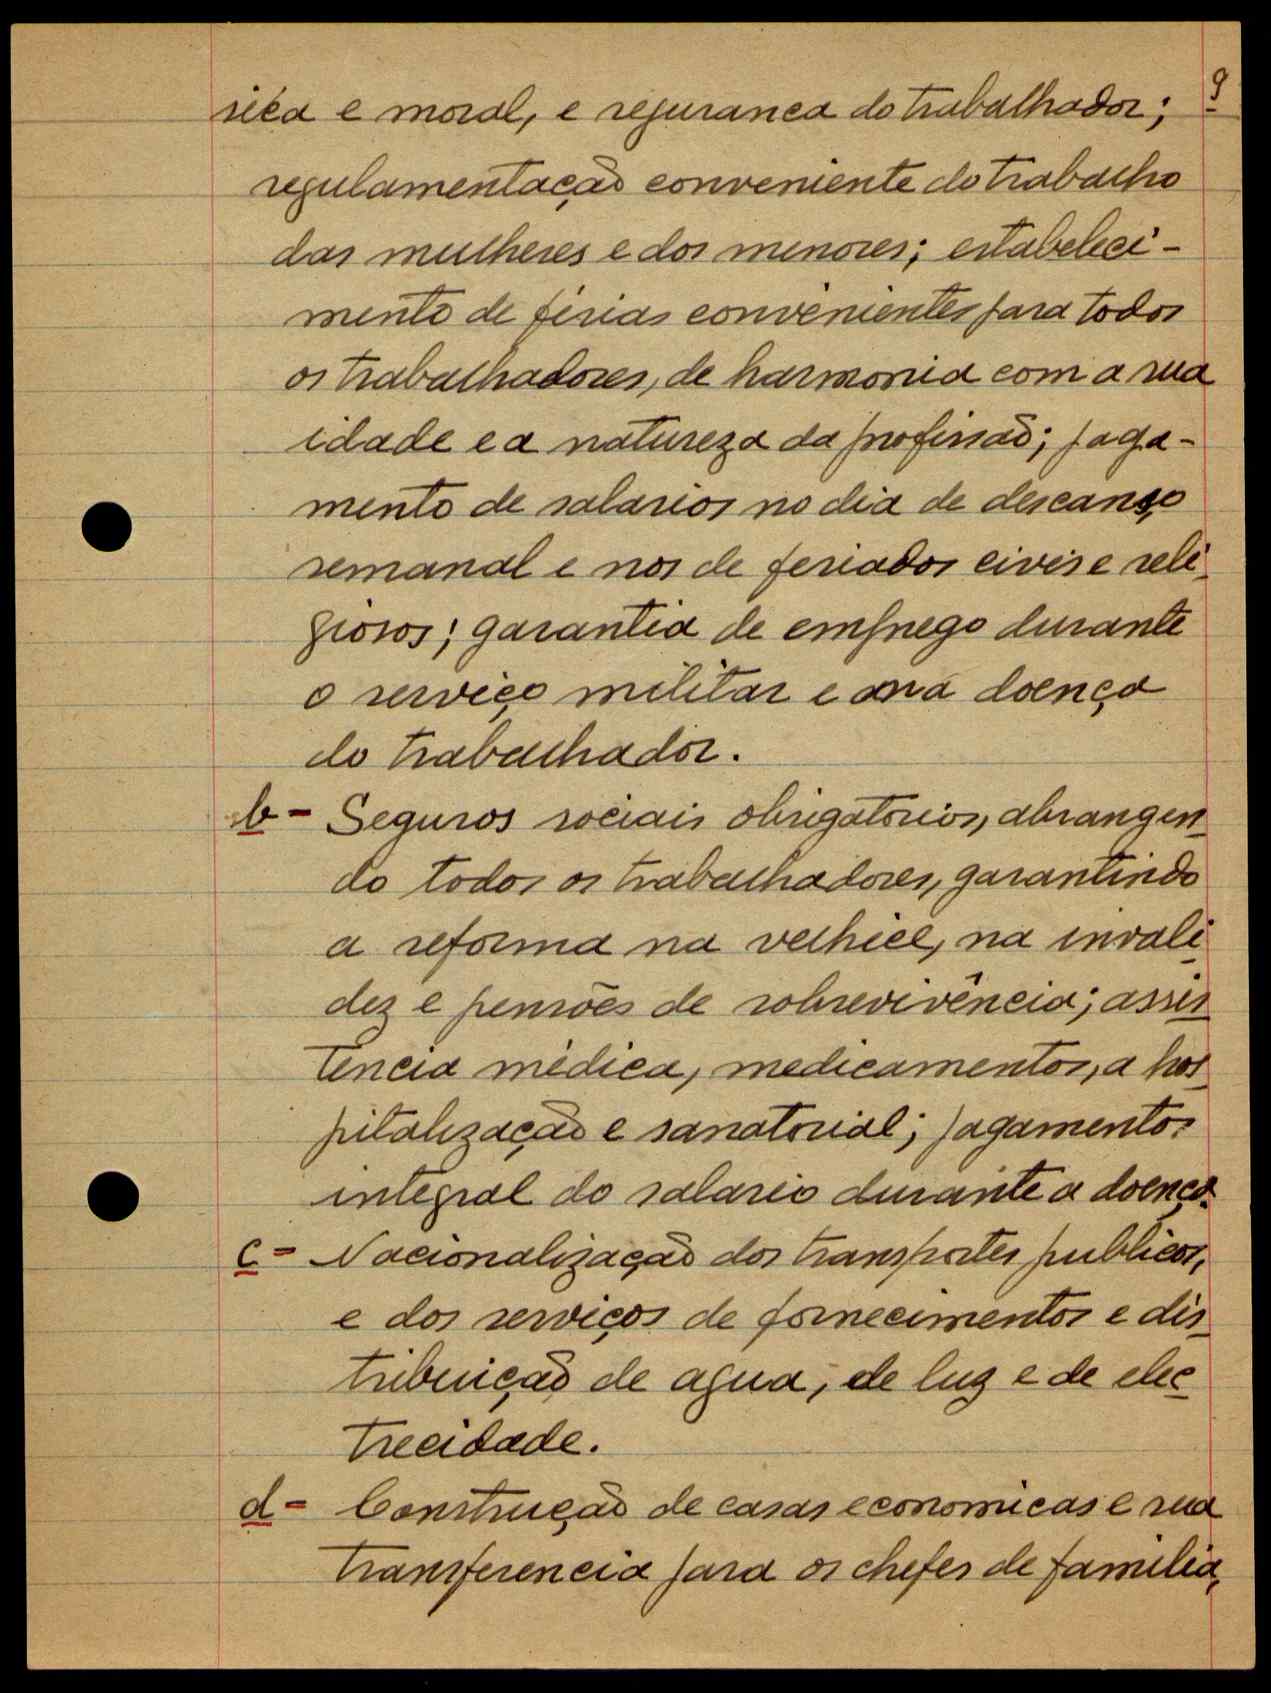 9
sica e moral, e segurança do trabalhador;
regulamentação conveniente do trabalho
das mulheres e dos menores; estabeleci-
mento de férias convenientes para todos
os trabalhadores, de harmonia com a sua
idade e a natureza da profissão; paga-
mento de salarios no dia de descanso
semanal e nos de feriados civis e reli-
giosos; garantia de emprego durante
o serviço militar e na doença
do trabalhador.
b- Seguros sociais obrigatorios, abrangen-
do todos os trabalhadores, garantindo
a reforma na velhice, na invali-
dez e pensões de sobrevivência; assis-
tencia médica, medicamentos, a hos-
pitalização e sanatorial; pagamentos
integral do salario durante a doença.
c- Nacionalização dos transportes publicos,
e dos serviços de fornecimentos e dis-
tribuição de agua, de luz e de elec-
trecidade.
d- Construção de casas economicas e sua
transferencia para os chefes de familia,